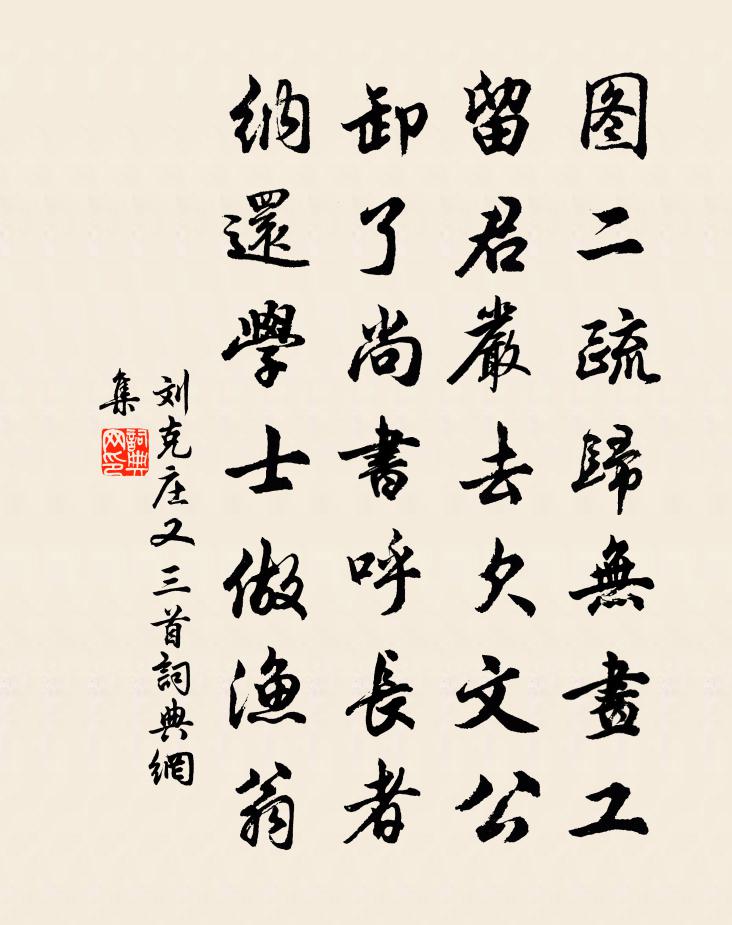 图二疏歸無畫工
留君嚴去欠文公
卸了尚書呼長者
納還學士做漁翁
刘克庄又三首詞典網
集
詞典網印